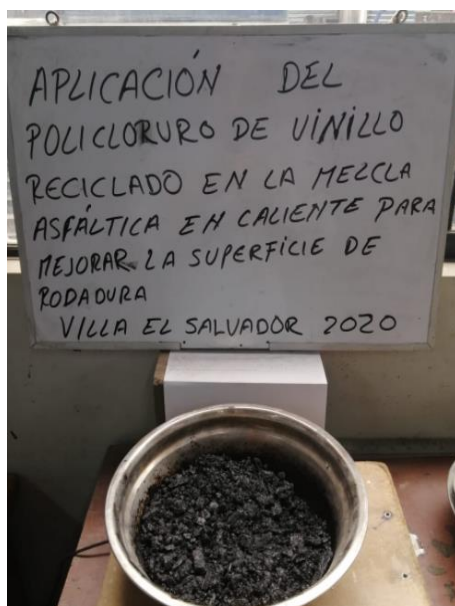 APLICACIÓN DEL
POLICLORURO DE VINILLO
RECICLADO EN LA MEZCLA
ASFÁLTICA EN CALIENTE PARA
MEJORAR LA SUPERFICIE DE
RODADURA
VILLA EL SALVADOR 2020